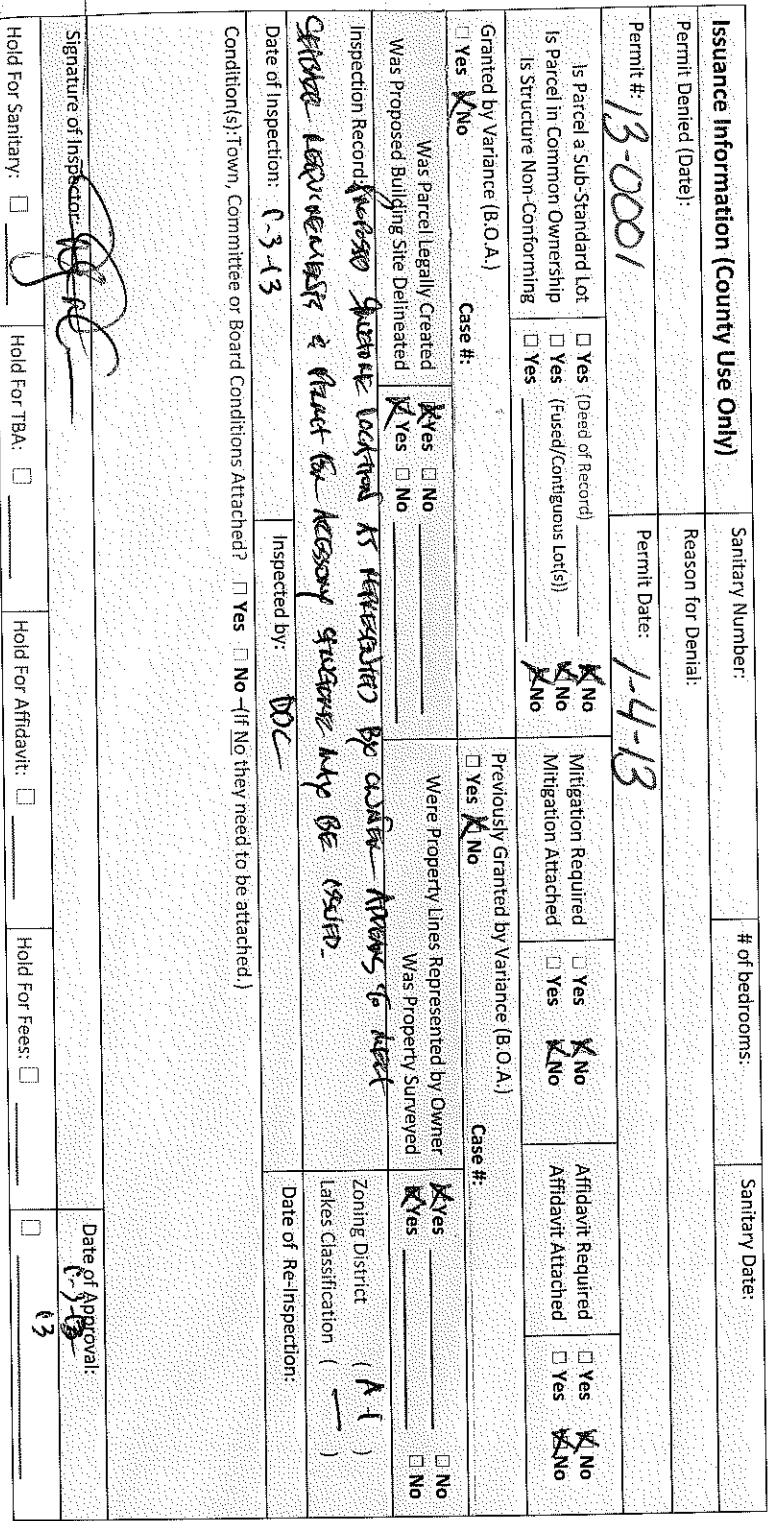 Issuance Information (County Use Only)
Sanitary Number:
# of bedrooms:
Sanitary Date:
Permit Denied (Date):
Reason for Denial:
Permit #: 13-0001
Permit Date: 1-4-13
Is Parcel a Sub-Standard Lot ☐ Yes (Deed of Record) ☒ No
Is Parcel in Common Ownership ☐ Yes (Fused/Contiguous Lot(s)) ☒ No
Is Structure Non-Conforming ☐ Yes ☒ No
Mitigation Required ☐ Yes ☒ No
Mitigation Attached ☐ Yes ☒ No
Affidavit Required ☐ Yes ☒ No
Affidavit Attached ☐ Yes ☒ No
Granted by Variance (B.O.A.)
☐ Yes ☒ No Case #:
Previously Granted by Variance (B.O.A.)
☐ Yes ☒ No Case #:
Was Parcel Legally Created ☒ Yes ☐ No
Was Proposed Building Site Delineated ☒ Yes ☐ No
Were Property Lines Represented by Owner ☒ Yes ☐ No
Was Property Surveyed ☒ Yes ☐ No
Inspection Record: Proposed structure location as represented by owner appears to meet
setback requirements & permit for accessory structure may be issued.
Zoning District ( A-1 )
Lakes Classification ( — )
Date of Inspection: 1-3-13
Inspected by: DOC
Date of Re-Inspection:
Condition(s): Town, Committee or Board Conditions Attached? ☐ Yes ☐ No – (If No they need to be attached.)
Signature of Inspector:
Date of Approval:
13
Hold For Sanitary: ☐
Hold For TBA: ☐
Hold For Affidavit: ☐
Hold For Fees: ☐
☐